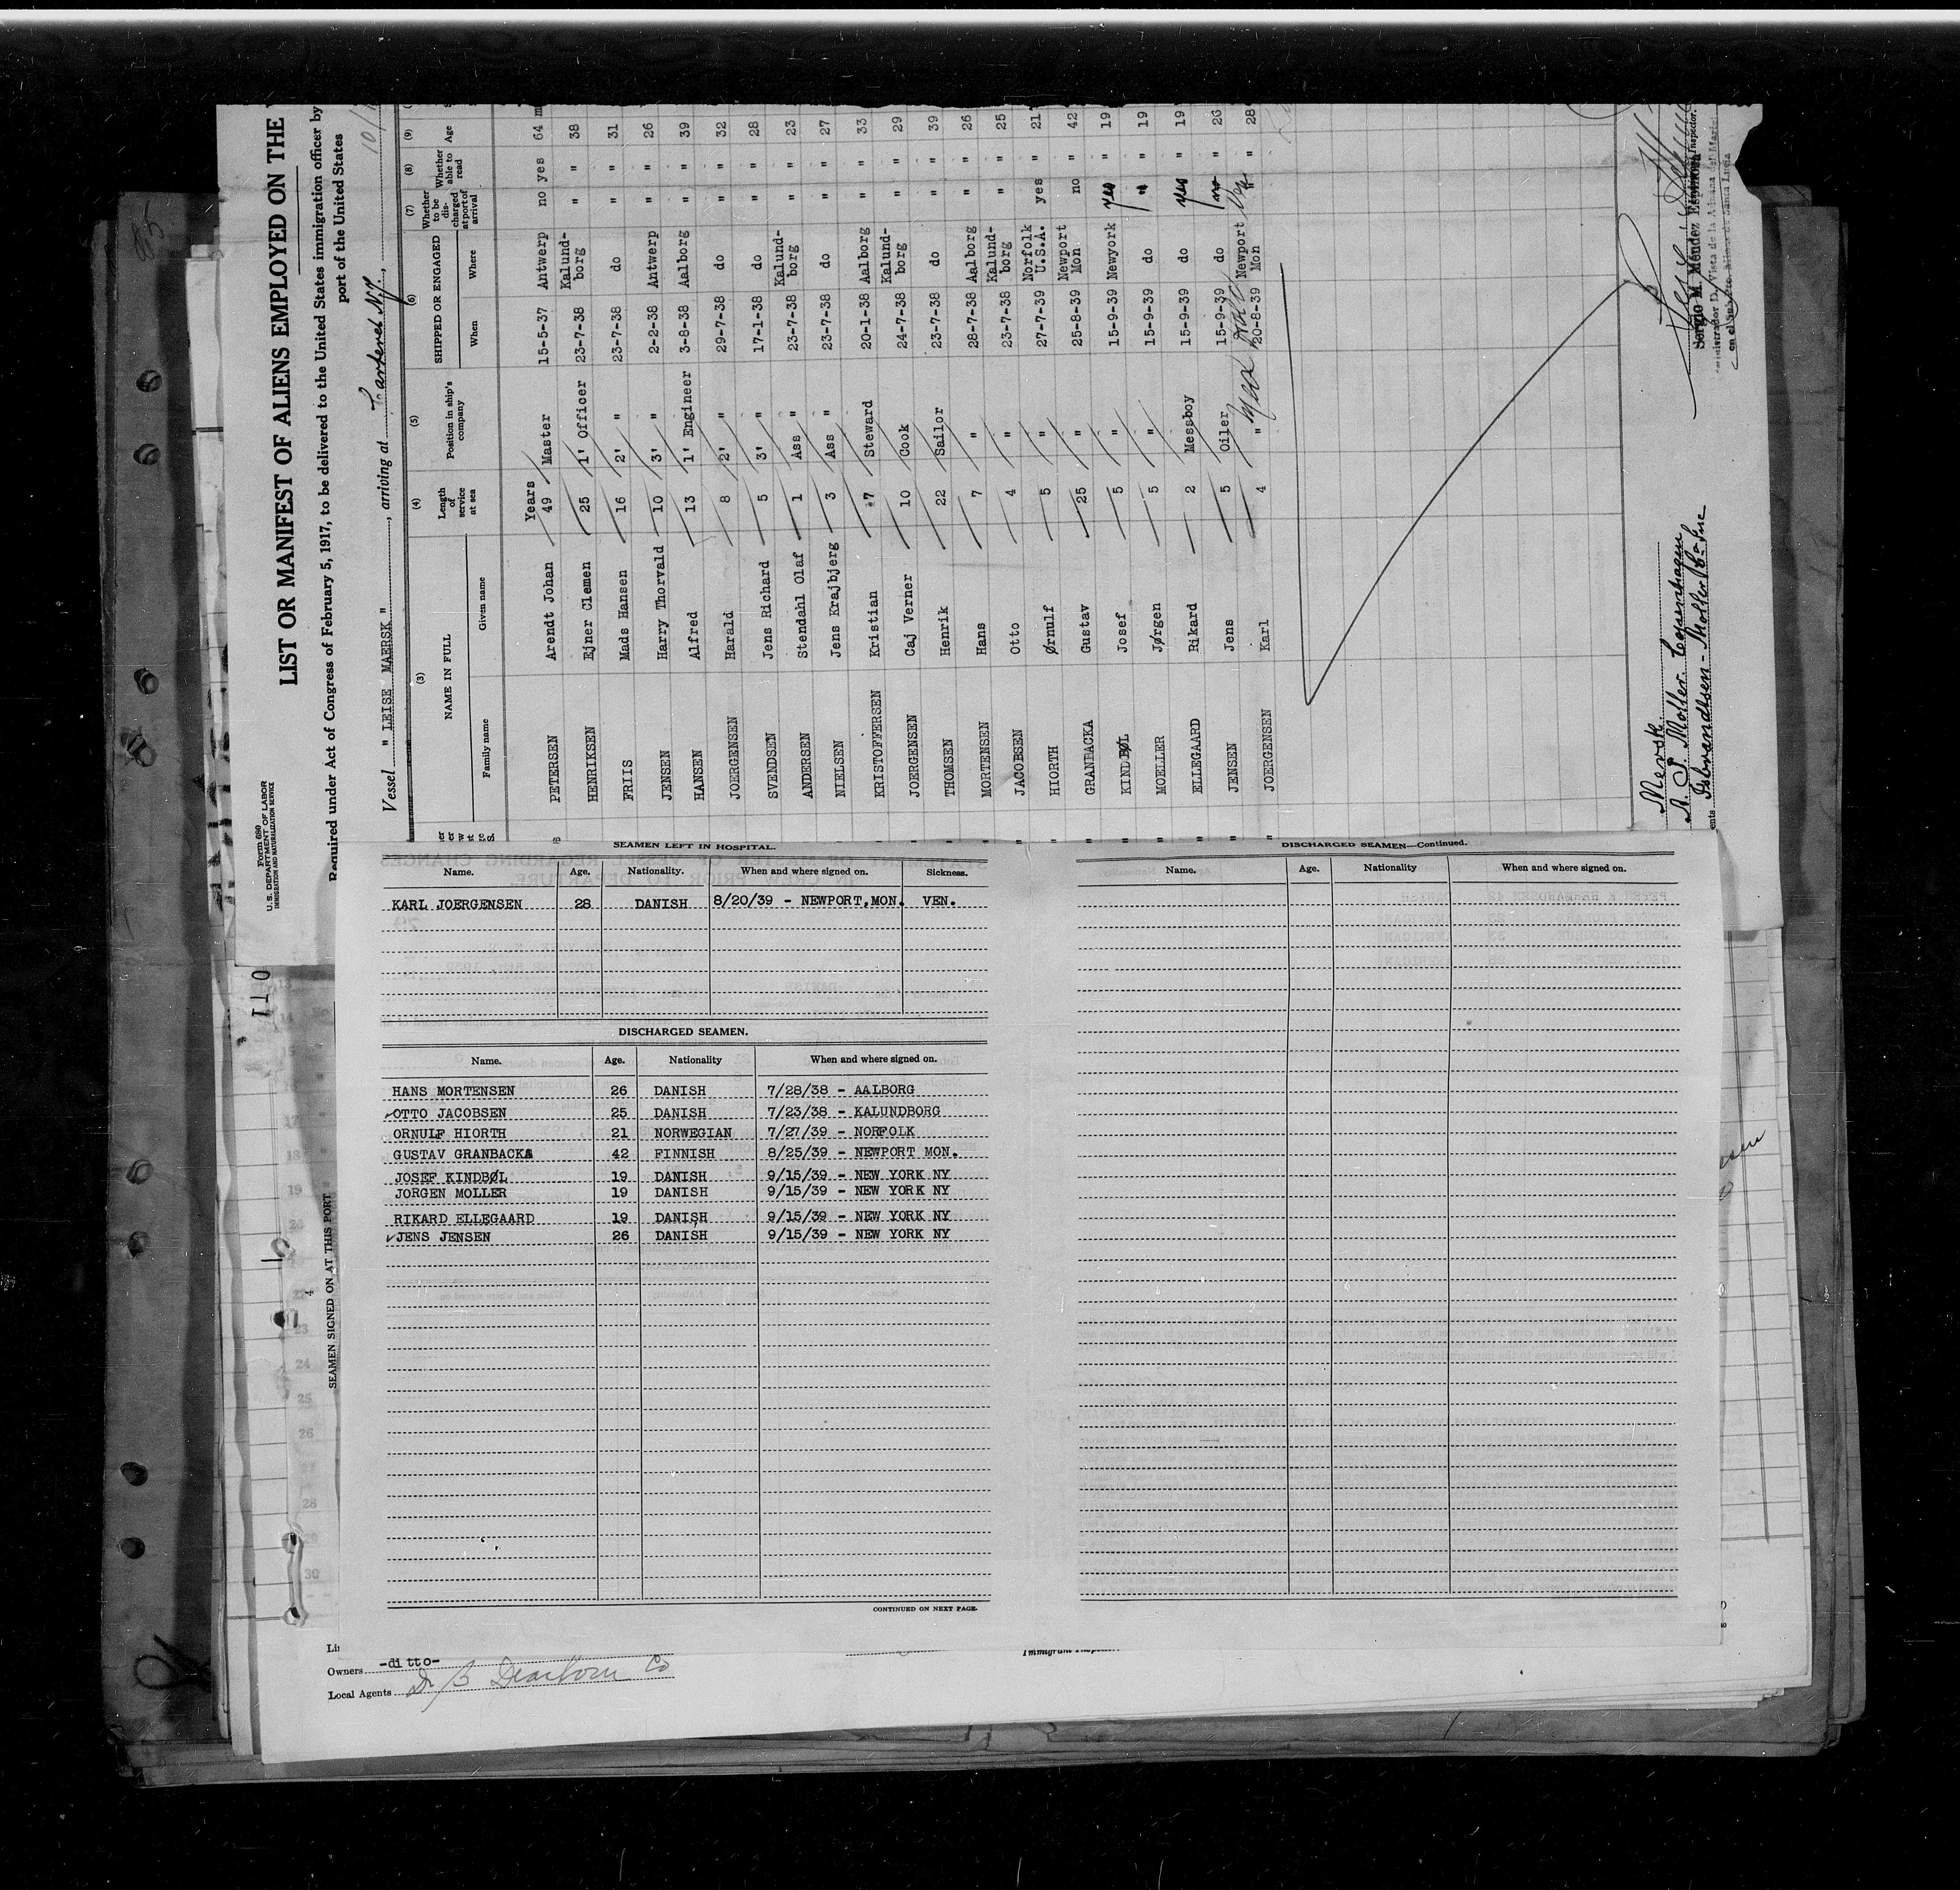 Form 680
U. S. DEPARTMENT OF LABOR
IMMIGRATION AND NATURALIZATION SERVICE
LIST OR MANIFEST OF ALIENS EMPLOYED ON THE
Required under Act of Congress of February 5, 1917, to be delivered to the United States immigration officer by
port of the United States
Vessel " LEISE MAERSK ", arriving at Carteret N.J.,
(3) (4) (5) (6) (7) (8) (9)
NAME IN FULL Length of service at sea Position in ship's company SHIPPED OR ENGAGED Whether to be discharged at port of arrival Whether able to read Age
Family name Given name When Where
Years
PETERSEN Arendt Johan 49 Master 15-5-37 Antwerp no yes 64
HENRIKSEN Ejner Clemen 25 1' Officer 23-7-38 Kalundborg " " 38
FRIIS Mads Hansen 16 2' " 23-7-38 do " " 31
JENSEN Harry Thorvald 10 3' " 2-2-38 Antwerp " " 26
HANSEN Alfred 13 1' Engineer 3-8-38 Aalborg " " 39
JOERGENSEN Harald 8 2' " 29-7-38 do " " 32
SVENDSEN Jens Richard 5 3' " 17-1-38 do " " 28
ANDERSEN Stendahl Olaf 1 Ass " 23-7-38 Kalundborg " " 23
NIELSEN Jens Krajbjerg 3 Ass " 23-7-38 do " " 27
KRISTOFFERSEN Kristian 7 Steward 20-1-38 Aalborg " " 33
JOERGENSEN Caj Verner 10 Cook 24-7-38 Kalundborg " " 29
THOMSEN Henrik 22 Sailor 23-7-38 do " " 39
MORTENSEN Hans 7 " 28-7-38 Aalborg " " 26
JACOBSEN Otto 4 " 23-7-38 Kalundborg " 25
HIORTH Ørnulf 5 " 27-7-39 Norfolk U.S.A. yes " 21
GRANBACKA Gustav 25 " 25-8-39 Newport Mon. no " 42
KINDBØL Josef 5 " 15-9-39 Newyork yes " 19
MOELLER Jørgen 5 " 15-9-39 do " " 19
ELLEGAARD Rikard 2 Messboy 15-9-39 do yes " 19
JENSEN Jens 5 Oiler 15-9-39 do no " 26
JOERGENSEN Karl 4 " 20-8-39 Newport Mon " 28
Mersk
A. P. Moller. Copenhagen
Isbrandtsen - Moller Co. Inc
Sergio M. Méndez Espinosa
SEAMEN LEFT IN HOSPITAL.
Name. Age. Nationality. When and where signed on. Sickness.
KARL JOERGENSEN 28 DANISH 8/20/39 - NEWPORT,MON. VEN.
DISCHARGED SEAMEN.
Name. Age. Nationality When and where signed on.
HANS MORTENSEN 26 DANISH 7/28/38 - AALBORG
✓OTTO JACOBSEN 25 DANISH 7/23/38 - KALUNDBORG
ORNULF HIORTH 21 NORWEGIAN 7/27/39 - NORFOLK
GUSTAV GRANBACKA 42 FINNISH 8/25/39 - NEWPORT MON.
JOSEF KINDBØL 19 DANISH 9/15/39 - NEW YORK NY
JORGEN MOLLER 19 DANISH 9/15/39 - NEW YORK NY
RIKARD ELLEGAARD 19 DANISH 9/15/39 - NEW YORK NY
✓JENS JENSEN 26 DANISH 9/15/39 - NEW YORK NY
CONTINUED ON NEXT PAGE.
DISCHARGED SEAMEN—Continued.
Name. Age. Nationality When and where signed on.
SEAMEN SIGNED ON AT THIS PORT
Owners -ditto-
Local Agents